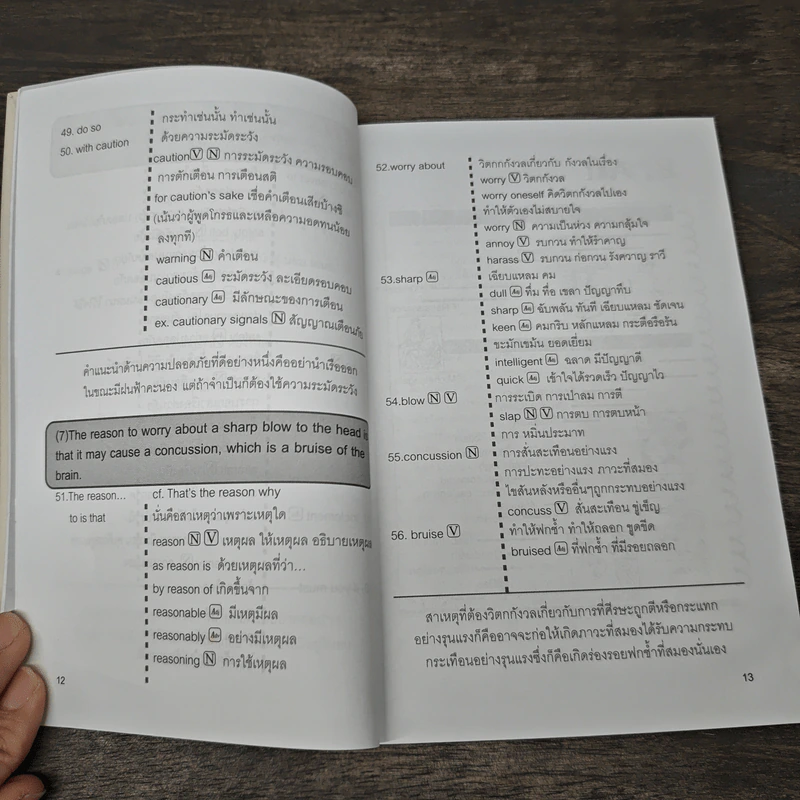 49. do so
กระทำเช่นนั้น ทำเช่นนั้น
50. with caution
ด้วยความระมัดระวัง
caution V N การระมัดระวัง ความรอบคอบ
การตักเตือน การเตือนสติ
for caution's sake เชื่อคำเตือนเสียบ้างซิ
(เน้นว่าผู้พูดโกรธและเหลือความอดทนน้อย
ลงทุกที)
warning N คำเตือน
cautious Adj ระมัดระวัง ละเอียดรอบคอบ
cautionary Adj มีลักษณะของการเตือน
ex. cautionary signals N สัญญาณเตือนภัย
คำแนะนำด้านความปลอดภัยที่ดีอย่างหนึ่งคืออย่านำเรือออก
ในขณะมีฝนฟ้าคะนอง แต่ถ้าจำเป็นก็ต้องใช้ความระมัดระวัง
(7)The reason to worry about a sharp blow to the head is
that it may cause a concussion, which is a bruise of the
brain.
51.The reason... cf. That's the reason why
to is that นั่นคือสาเหตุว่าเพราะเหตุใด
reason N V เหตุผล ให้เหตุผล อธิบายเหตุผล
as reason is ด้วยเหตุผลที่ว่า...
by reason of เกิดขึ้นจาก
reasonable มีเหตุมีผล
reasonably อย่างมีเหตุผล
reasoning N การใช้เหตุผล
12
52.worry about วิตกกังวลเกี่ยวกับ กังวลในเรื่อง
worry V วิตกกังวล
worry oneself คิดวิตกกังวลไปเอง
ทำให้ตัวเองไม่สบายใจ
worry N ความเป็นห่วง ความกลุ้มใจ
annoy V รบกวน ทำให้รำคาญ
harass V รบกวน ก่อกวน รังควาญ ราวี
53.sharp เฉียบแหลม คม
dull ทื่ม ทื่อ เขลา ปัญญาทึบ
sharp ฉับพลัน ทันที เฉียบแหลม ชัดเจน
keen คมกริบ หลักแหลม กระตือรือร้น
ขะมักเขม้น ยอดเยี่ยม
intelligent ฉลาด มีปัญญาดี
quick เข้าใจได้รวดเร็ว ปัญญาไว
54.blow N V การระเบิด การเป่าลม การตี
slap N V การตบ การตบหน้า
การ หมิ่นประมาท
55.concussion N การสั่นสะเทือนอย่างแรง
การปะทะอย่างแรง ภาวะที่สมอง
ไขสันหลังหรืออื่นๆถูกกระทบอย่างแรง
concuss V สั่นสะเทือน ขู่เข็ญ
56. bruise V ทำให้ฟกช้ำ ทำให้ถลอก ขูดขีด
bruised ที่ฟกช้ำ ที่มีรอยถลอก
สาเหตุที่ต้องวิตกกังวลเกี่ยวกับการที่ศีรษะถูกตีหรือกระแทก
อย่างรุนแรงก็คืออาจจะก่อให้เกิดภาวะที่สมองได้รับความกระทบ
กระเทือนอย่างรุนแรงซึ่งก็คือเกิดร่องรอยฟกช้ำที่สมองนั่นเอง
13